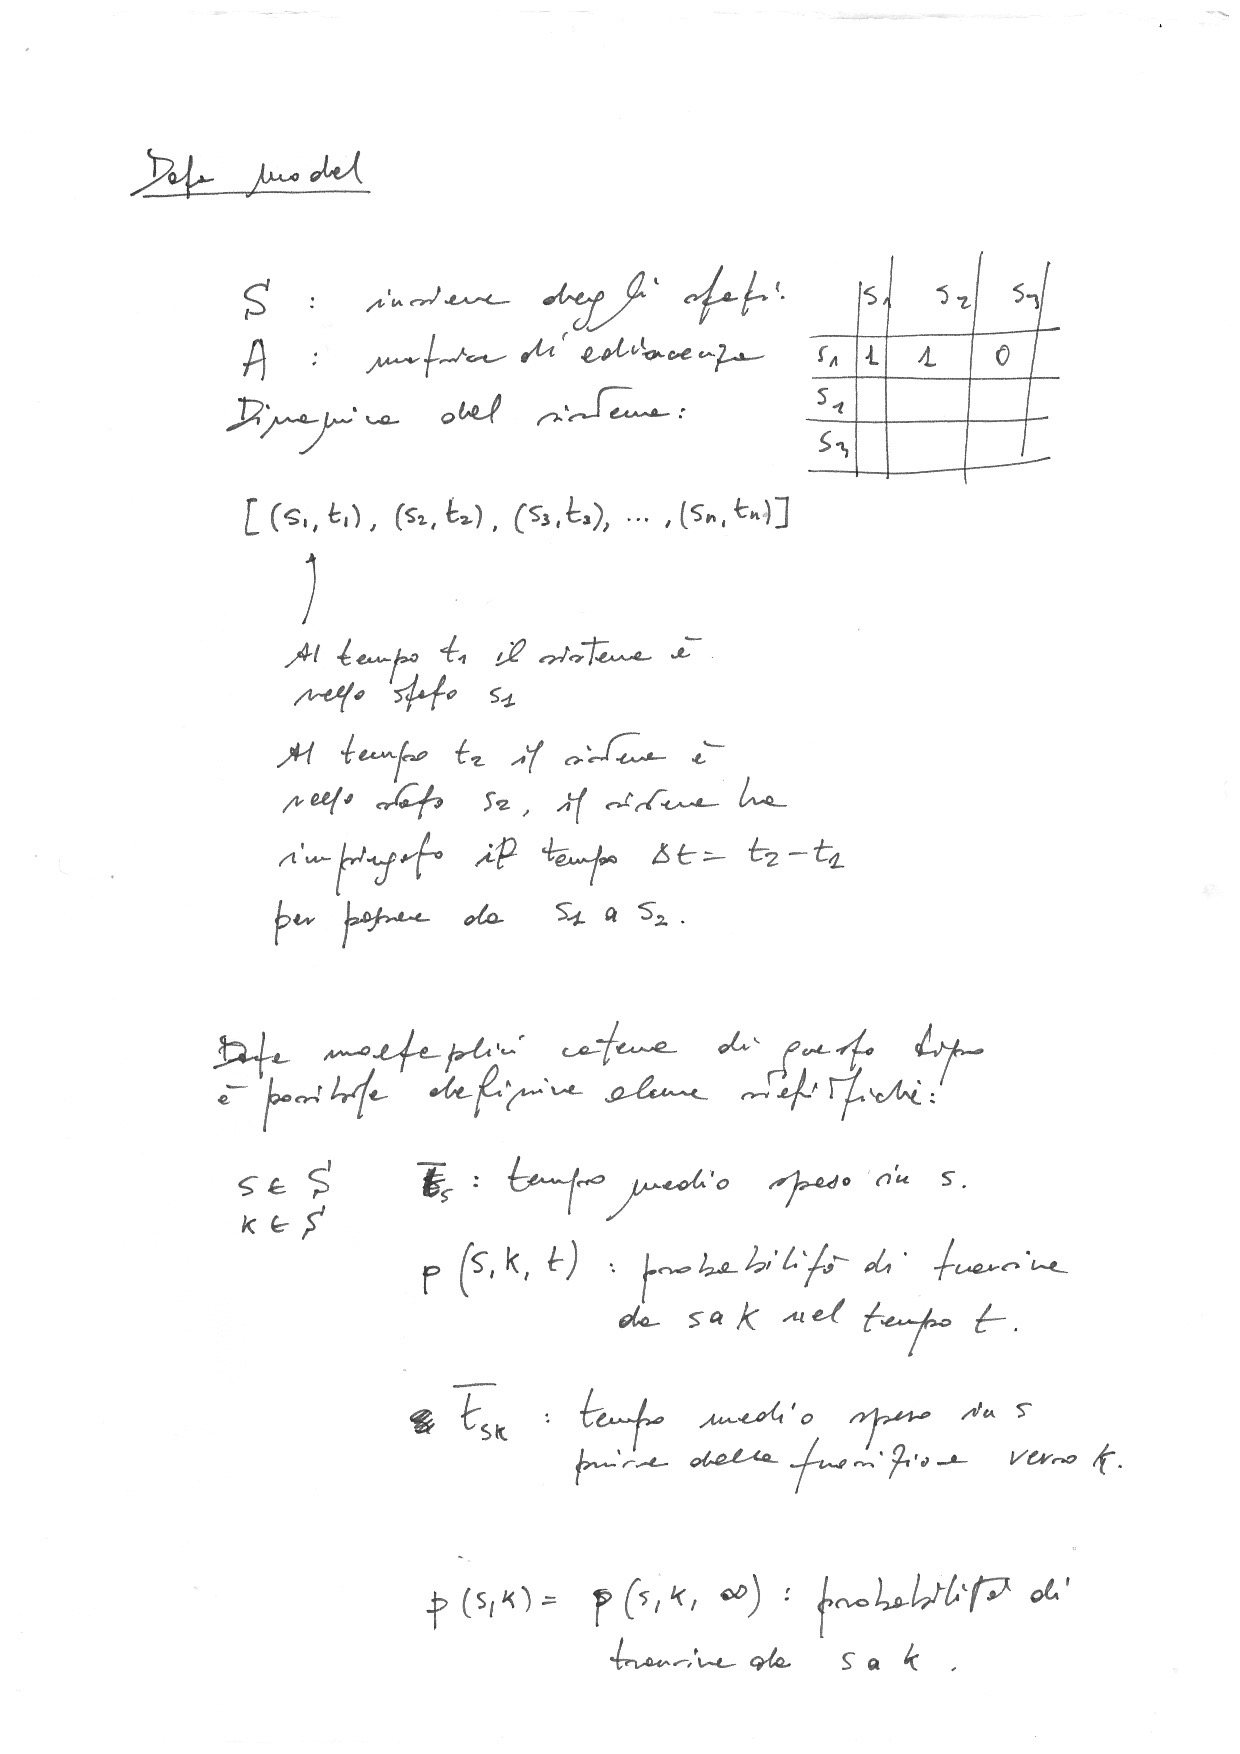 Data model
S : insieme degli stati.
A : matrice di adiacenza
Dinamica del sistema:
s1 s2 s3
s1 1 1 0
s2
s3
[(s1, t1), (s2, t2), (s3, t3), ... , (sn, tn)]
Al tempo t1 il sistema è
nello stato s1
Al tempo t2 il sistema è
nello stato s2, il sistema ha
impiegato il tempo Δt = t2 - t1
per passare da s1 a s2.
Date molteplici catene di questo tipo
è possibile definire alcune statistiche:
s ∈ S
k ∈ S
t̄s : tempo medio speso in s.
p (s, k, t) : probabilità di transire
da s a k nel tempo t.
t̄sk : tempo medio speso in s
prima della transizione verso k.
p (s, k) = p (s, k, ∞) : probabilità di
transire da s a k .